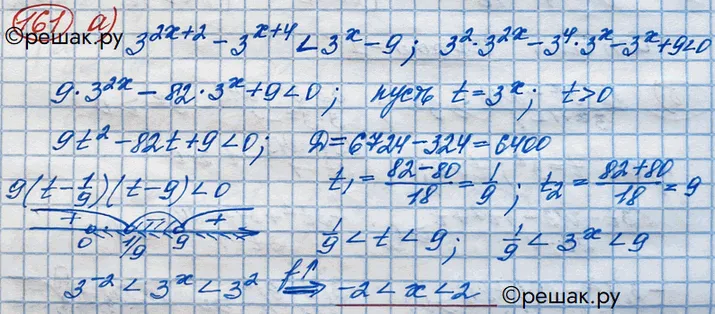 161 а)
©решак.ру
3^{2x+2} - 3^{x+4} < 3^x - 9; 3^2·3^{2x} - 3^4·3^x - 3^x + 9 < 0
9·3^{2x} - 82·3^x + 9 < 0; пусть t = 3^x; t > 0
9t^2 - 82t + 9 < 0; D = 6724 - 324 = 6400
9(t - 1/9)(t - 9) < 0 t_1 = (82 - 80)/18 = 1/9; t_2 = (82 + 80)/18 = 9
+ - +
0 1/9 9 1/9 < t < 9; 1/9 < 3^x < 9
3^{-2} < 3^x < 3^2 f↑ ⇒ -2 < x < 2
©решак.ру